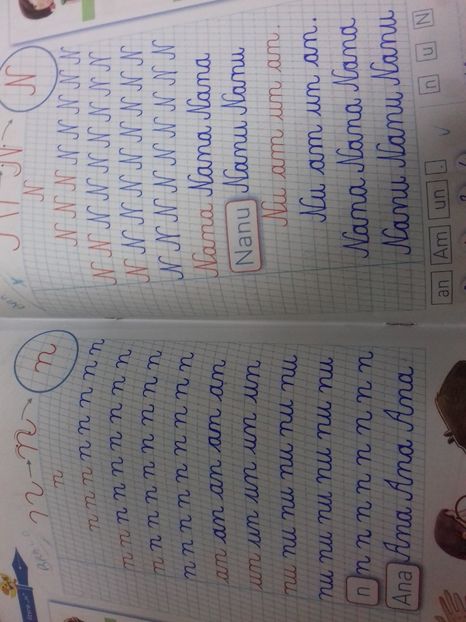 n → n → n
n
n n n n n n n n
n n n n n n n n
n n n n n n n n
n n n n n n n n
an an an an an
un un un un un
nu nu nu nu nu
nu nu nu nu nu
n n n n n n n n
Ana Ana Ana Ana
N → N → N
N
N N N N N N N N
N N N N N N N N
N N N N N N N N
N N N N N N N N
Nana Nana Nana
Nanu Nanu Nanu
Nu am un an.
Nu am un an.
Nana Nana Nana
Nanu Nanu Nanu
an Am un . n u N